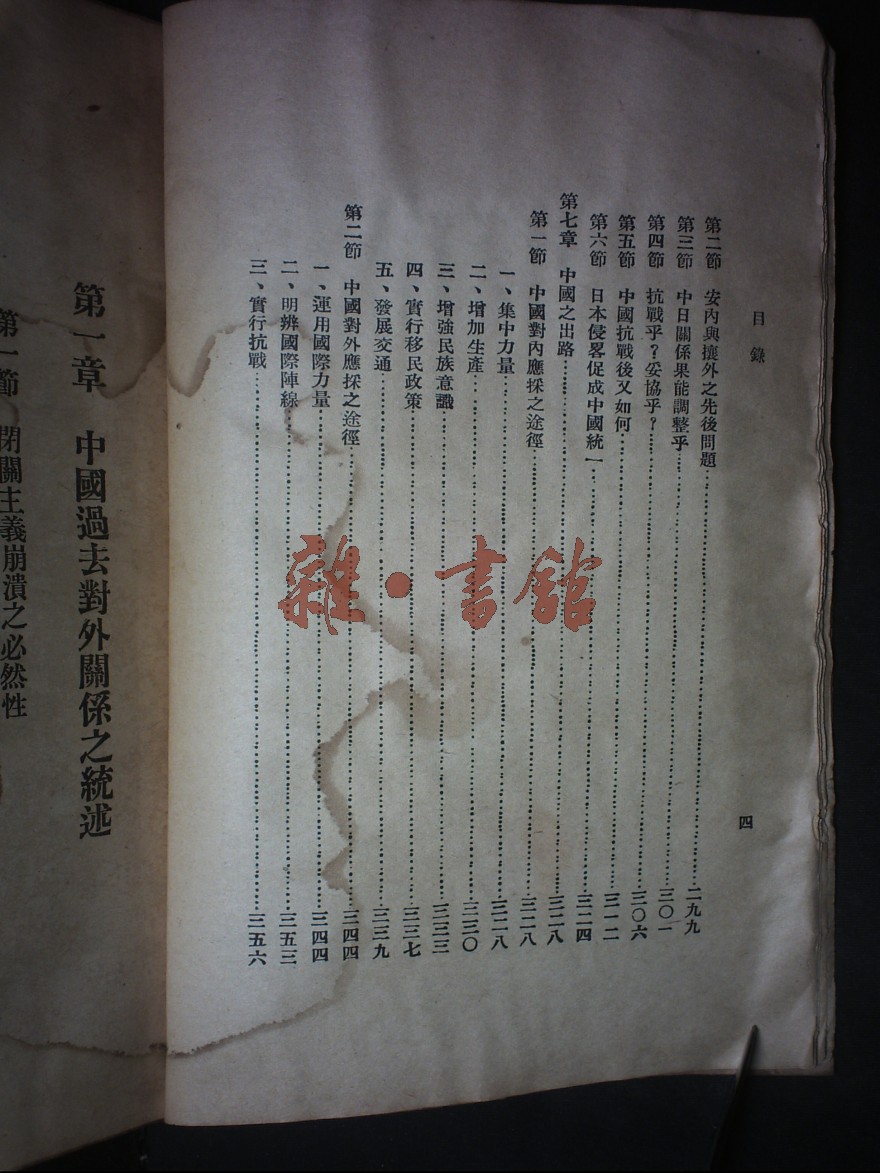 目錄
四
第二節 安內與攘外之先後問題……二九九
第三節 中日關係果能調整乎……三〇一
第四節 抗戰乎？妥協乎？……三〇六
第五節 中國抗戰後又如何……三一二
第六節 日本侵畧促成中國統一……三二四
第七章 中國之出路……三二八
第一節 中國對內應採之途徑……三二八
一、集中力量……三二八
二、增加生產……三三〇
三、增強民族意識……三三三
四、實行移民政策……三三七
五、發展交通……三三九
第二節 中國對外應採之途徑……三四四
一、運用國際力量……三四四
二、明辨國際陣線……三五三
三、實行抗戰……三五六
第一章 中國過去對外關係之統述
第一節 閉關主義崩潰之必然性
雜·書館